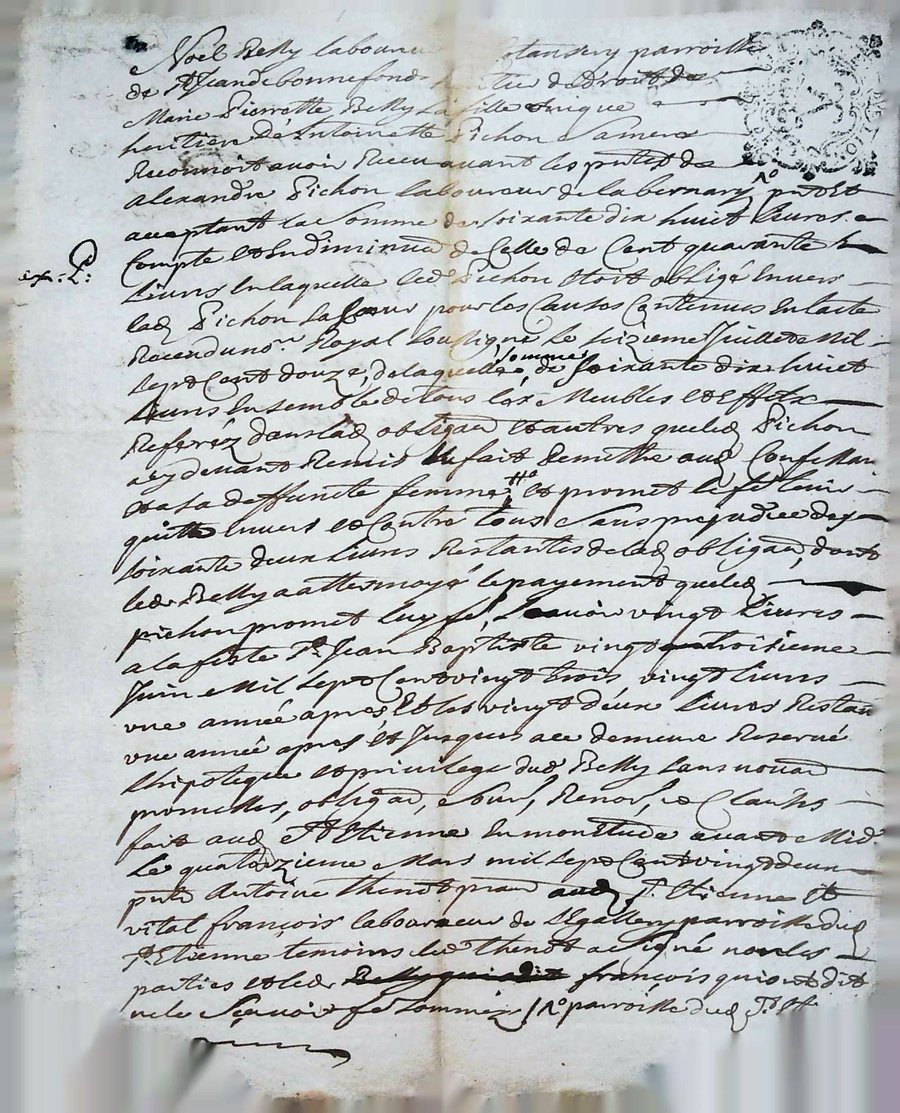 Noel Belly laboureur parroisse
de St Jean de bonnefond de Droit de
Marie Pierrette Belly sa fille unique
heritiere de Antoinette Pichon sa mere
Reconnoit avoir Receu avant les pntes de
alexandre Pichon laboureur de la bernary /No pnt et
acceptant la somme de soixante dix huict livres a
Compte et En diminuā de Celle de Cent quarante
Livres En laquelle led Pichon Etoit obligé Envers
exp: Pé:
lad Pichon sa soeur pour les Causes Contenues En l'acte
Receu du nore Royal soussigné le seizieme Juillet Mil
sept Cent douze, de laquelle somme de soixante dix huict
Livres Ensemble de tous les Meubles et Effets
Referéz dans lad obligaō et autres que led Pichon
a cy devant Remis et fait Remettre aud Confessant
et a sa deffuncte femme, et promet le fe tenir
quitte Envers et Contre tous sans prejudice des
soixante deux Livres Restantes de lad obligaō, dont
led Belly a attermoyé le payement que led
pichon promet luy fe, sçavoir vingt Livres
a la feste St Jean Baptiste vingt troisieme
Juin Mil sept Cent vingt trois vingt livres
une année apres Et les vingt deux livres Restan
une année apres et Jusques a ce demeure Reservé
l'hipoteque et privilege dud Belly sans novaō
promesses, obligaō, Renoñ, et Clauses
fait aud St Etienne En mon Etude avant Midy
Le quatorzieme Mars mil sept Cent vingt deux
pnts Antoine thenot praā aud St Etienne Et
vital françois laboureur de parroisse dud
St Etienne temoins led thenot a signé non les
parties et led françois qui ont dit
ne le sçavoir fe sommés /No parroisse dud St Et